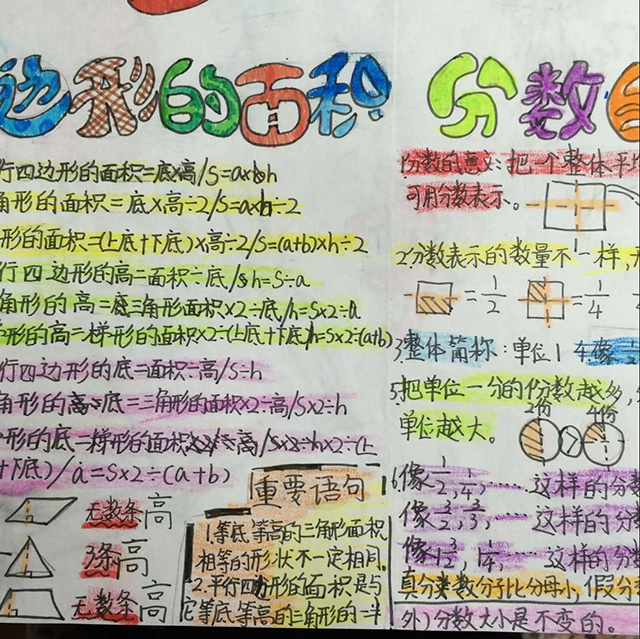 边形的面积
行四边形的面积=底×高/S=a×h
角形的面积=底×高÷2/S=a×h÷2
形的面积=(上底+下底)×高÷2/S=(a+b)×h÷2
行四边形的高=面积÷底/h=S÷a
角形的高=三角形面积×2÷底/h=S×2÷a
形的高=梯形的面积×2÷(上底+下底)/h=S×2÷(a+b)
行四边形的底=面积÷高/S÷h
角形的底=三角形的面积×2÷高/S×2÷h
形的底=梯形的面积×2÷高/S×2÷h
下底)/a=S×2÷(a+b)
无数条高
3条高
无数条高
重要语句
1.等底等高的三角形面积
相等的形状不一定相同。
2.平行四边形的面积是与
它等底等高的三角形的一半
分数
1分数的意义:把一个整体平均
可用分数表示。
2.分数表示的数量不一样,
=1/2 =1/4
3整体简称:单位1 像
5.把单位一分的份数越多,
单位越大。
2份 > 4份
像1/2,1/4,……这样的分数
像3/2,3/3,……这样的分
像1 3/2,1 1/4,……这样的分
真分数分子比分母小,假分
外)分数大小是不变的。